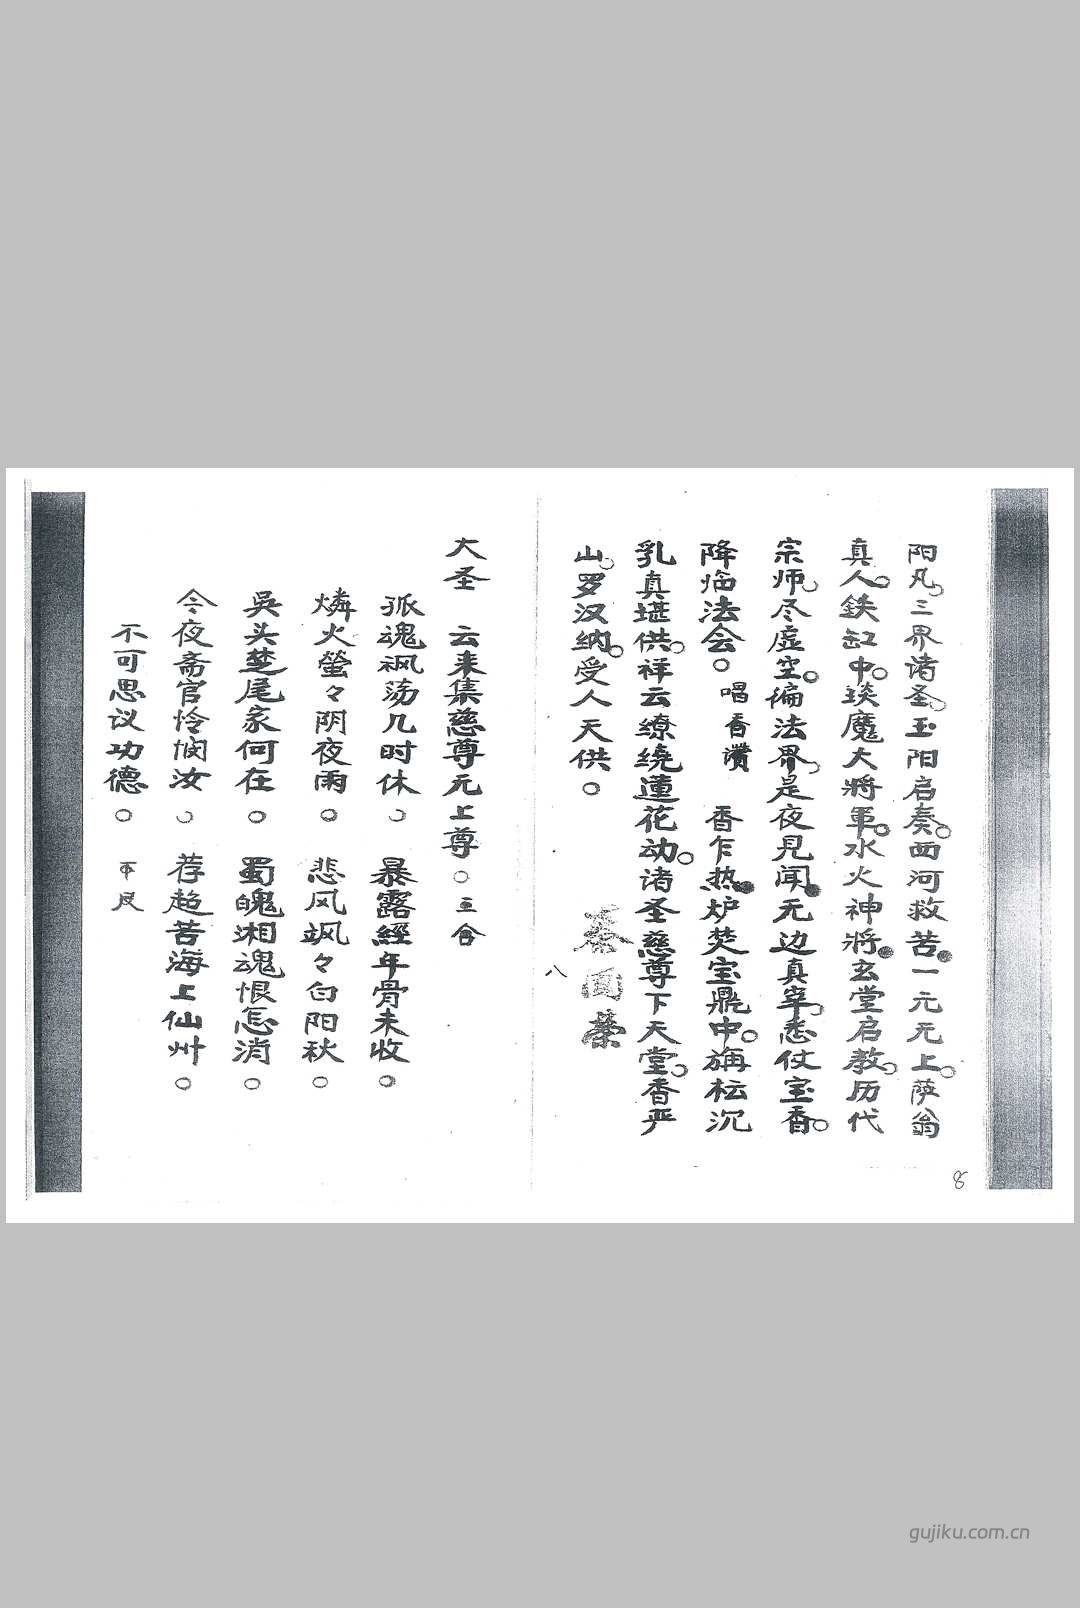 阳凡，三界诸圣。玉阳启奏。西河救苦。一元无上。萨翁
真人。鉄缸中。琰魔大将軍。水火神将。玄堂启教。历代
宗师。尽虚空。徧法界。是夜見闻。无边真宰。悉仗宝香。
降临法会。 唱香讚 香乍热。炉焚宝鼎中。旃枟沉
乳真堪供。祥云缭绕蓮花动。诸圣慈尊下天堂。香严
山。罗汉纳。受人天供。
八
大圣 云来集慈尊无上尊。三合
孤魂飒荡几时休。 暴露經年骨未收。
燐火螢々阴夜雨。 悲风飒々白阳秋。
吳头楚尾家何在。 蜀魄湘魂恨怎消。
今夜斋官怜悯汝。 荐超苦海上仙州。
不可思议功德。
8
gujiku.com.cn